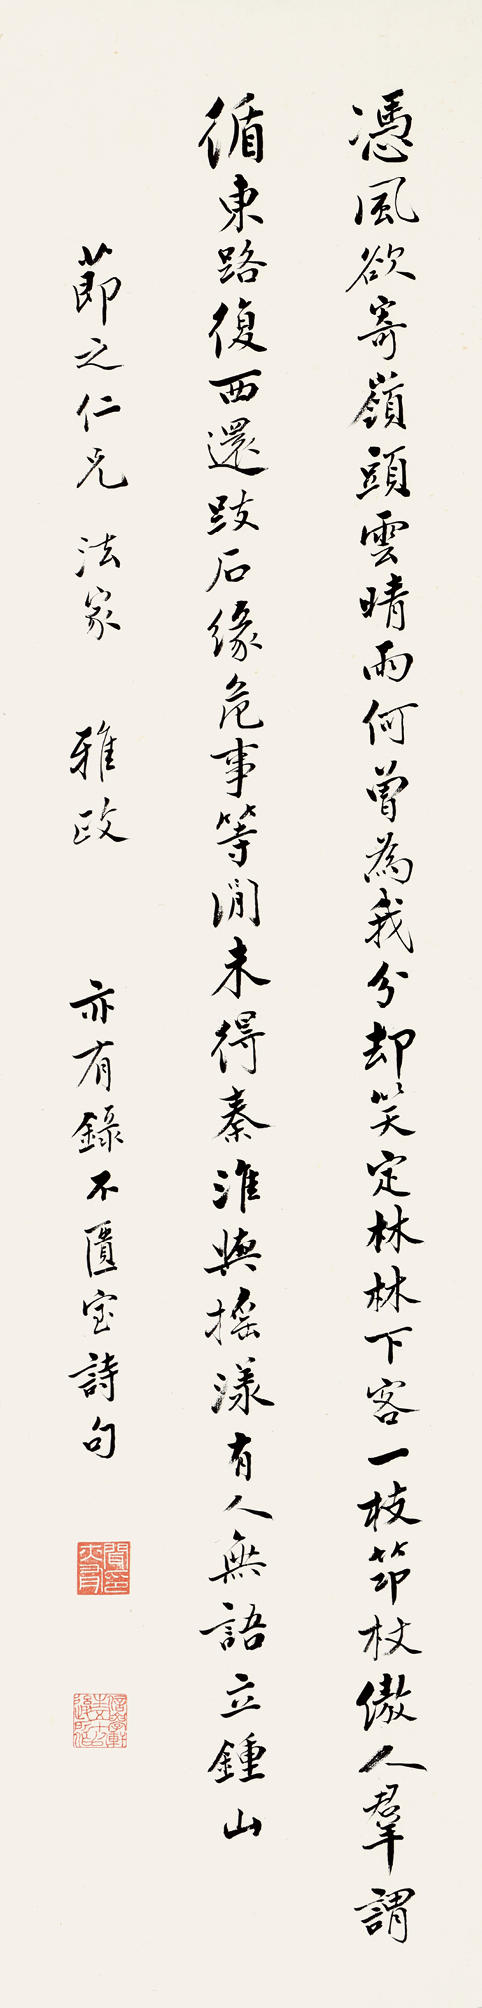 憑風欲寄嶺頭雲晴雨何曾為我分却笑定林林下客一枝筇杖傲人羣謂
循東路復西還跂石緣危事等閒未得秦淮與搖漾有人無語立鍾山
莭之仁兄 法家 雅政 亦有錄不匱室詩句
聞印亦有